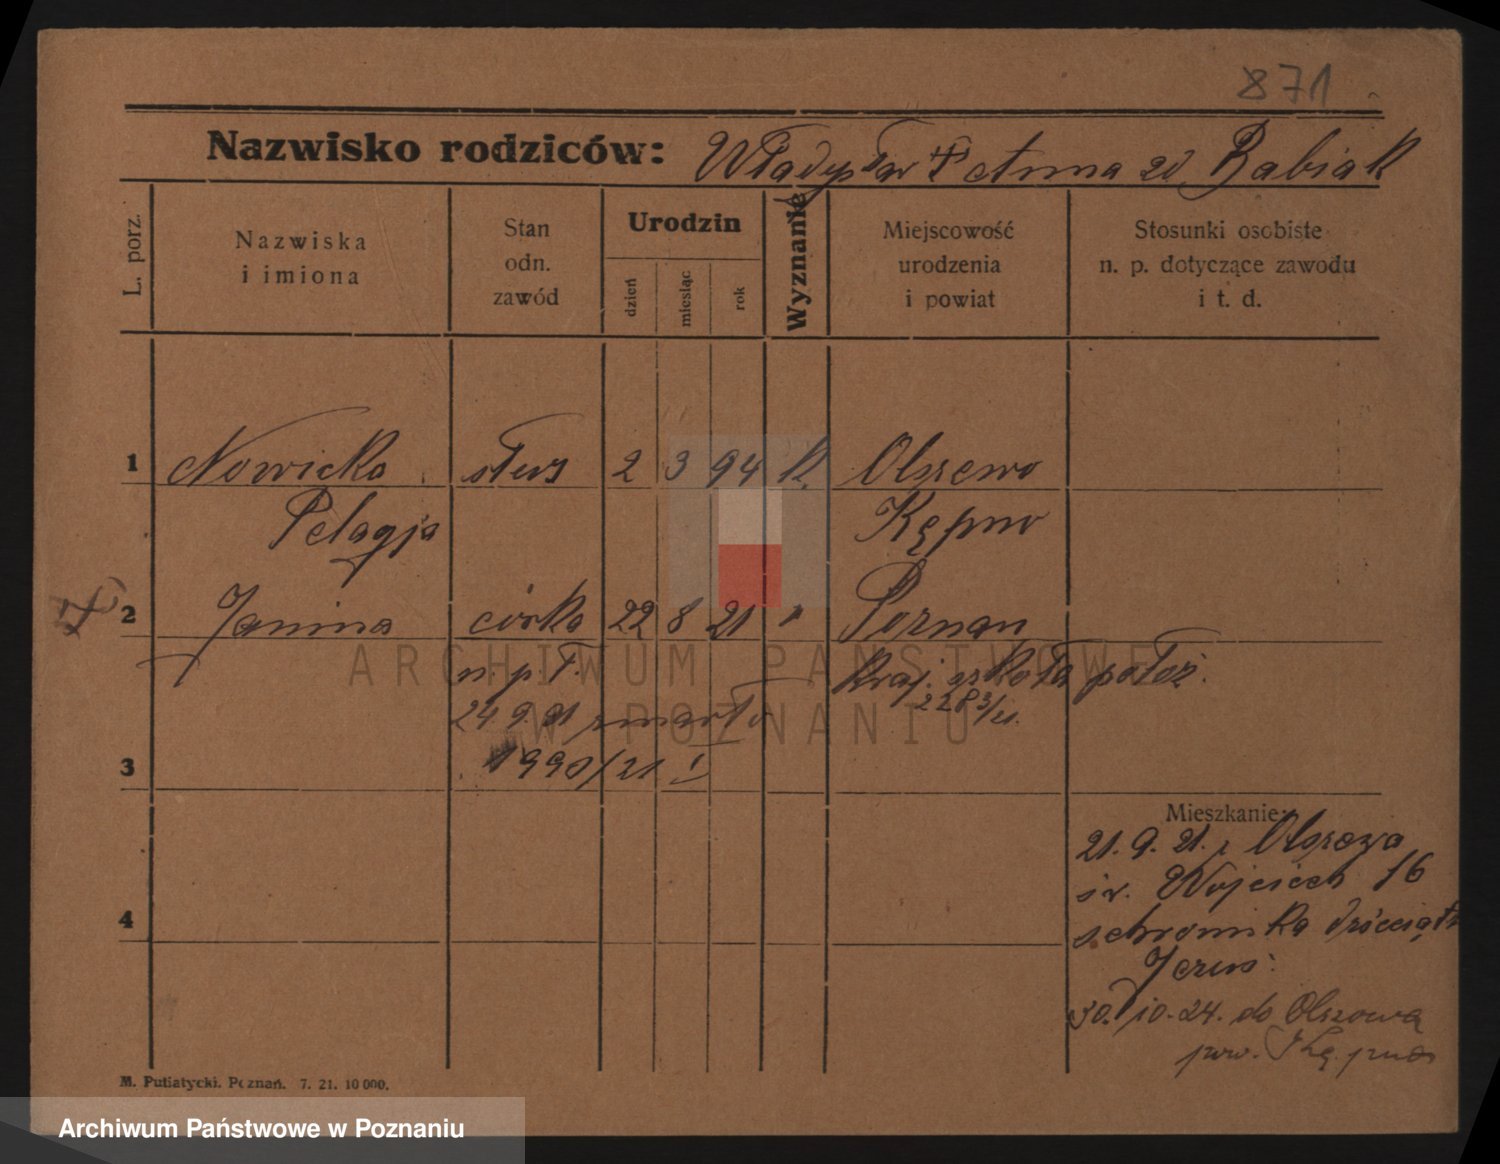 871
Nazwisko rodziców: Władysław + Anna zd Babiak
L. porz.
Nazwiska
i imiona
Stan
odn.
zawód
Urodzin
dzień
miesiąc
rok
Wyznanie
Miejscowość
urodzenia
i powiat
Stosunki osobiste
n. p. dotyczące zawodu
i t. d.
1 Nowicka służ 2 3 94 k. Olszewo
Pelagja Kępno
2 Janina córka 22 8 21 " Poznan
n. p. T. Kraj. szkoła położ.
24 9. 21 zmarła 228 3/21.
3 1990/21 I
Mieszkanie:
21. 9. 21. z Olszewa
św. Wojciech 16
4 schroniska
Jezus.
30. 10. 24. do Olszowa
pow. Kępno
M. Putiatycki. Poznań. 7. 21. 10 000.
ARCHIWUM PAŃSTWOWE
W POZNANIU
Archiwum Państwowe w Poznaniu